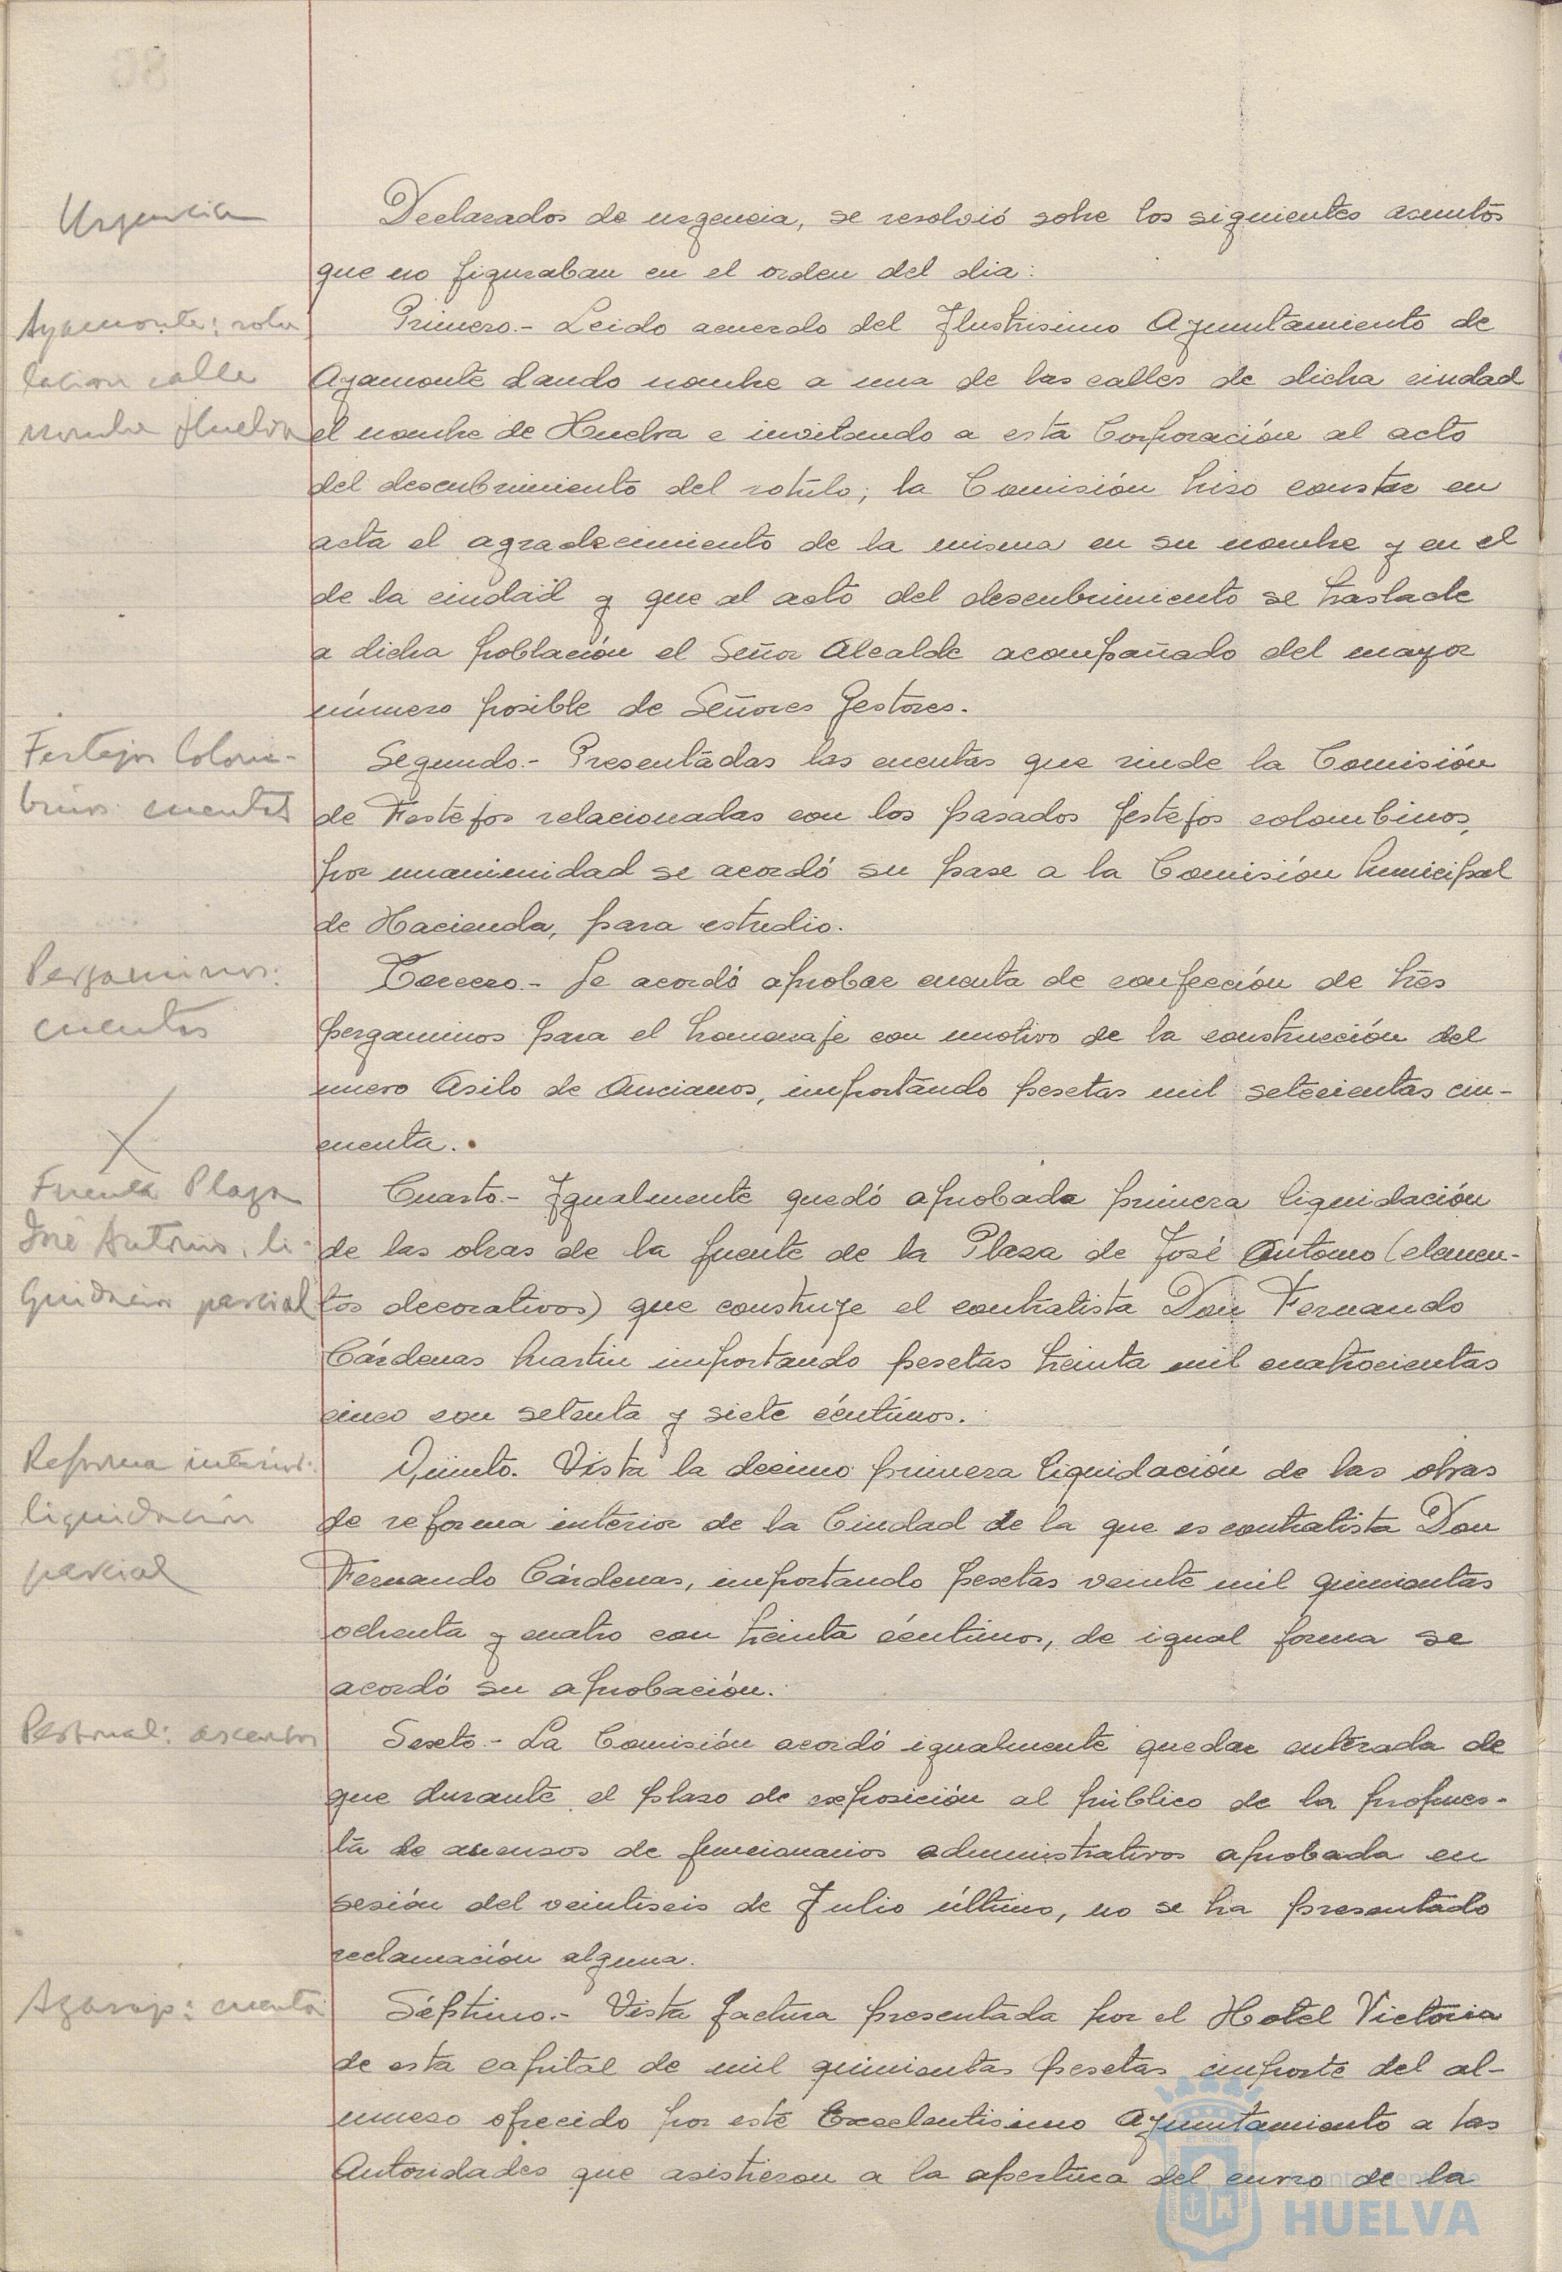 Urgencia
Declarados de urgencia, se resolvió sobre los siguientes asuntos
que no figuraban en el orden del dia:
Ayamonte: rotu
lacion calle
nombre Huelva
Primero.- Leido acuerdo del Ilustrisimo Ayuntamiento de
Ayamonte dando nombre a una de las calles de dicha ciudad
el nombre de Huelva e invitando a esta Corporación al acto
del descubrimiento del rotulo; la Comisión hiso constar en
acta el agradecimiento de la misma en su nombre y en el
de la ciudad y que al acto del descubrimiento se traslade
a dicha población el Señor Alcalde acompañado del mayor
número posible de Señores Gestores.
Festejos Colom-
binos: cuentas
Segundo.- Presentadas las cuentas que rinde la Comisión
de Festejos relacionadas con los pasados festejos colombinos,
por unanimidad se acordó su pase a la Comisión Municipal
de Hacienda, para estudio.
Pergaminos:
cuentas
Tercero.- Se acordó aprobar cuenta de confección de tres
pergaminos para el homenaje con motivo de la construcción del
nuevo Asilo de Ancianos, importando pesetas mil setecientas cin-
cuenta.
Fuente Plaza
José Antonio, li-
quidacion parcial
Cuarto.- Igualmente quedó aprobada primera liquidación
de las obras de la fuente de la Plaza de José Antonio (elemen-
tos decorativos) que construye el contratista Don Fernando
Cárdenas Martin importando pesetas treinta mil cuatrocientas
cinco con setenta y siete céntimos.
Reforma interior:
liquidación
parcial
Quinto. Vista la decimo primera liquidación de las obras
de reforma interior de la Ciudad de la que es contratista Don
Fernando Cárdenas, importando pesetas veinte mil quinientas
ochenta y cuatro con treinta céntimos, de igual forma se
acordó su aprobación.
Personal: ascensos
Sexto.- La Comisión acordó igualmente quedar enterada de
que durante el plaso de exposición al público de la propues-
ta de ascensos de funcionarios administrativos aprobada en
sesión del veintiseis de Julio último, no se ha presentado
reclamación alguna.
Agasajo: cuenta
Séptimo.- Vista factura presentada por el Hotel Victoria
de esta capital de mil quinientas pesetas importe del al-
muerso ofrecido por este Excelentisimo Ayuntamiento a las
Autoridades que asistieron a la apertura del curso de la
Ayuntamiento de
HUELVA